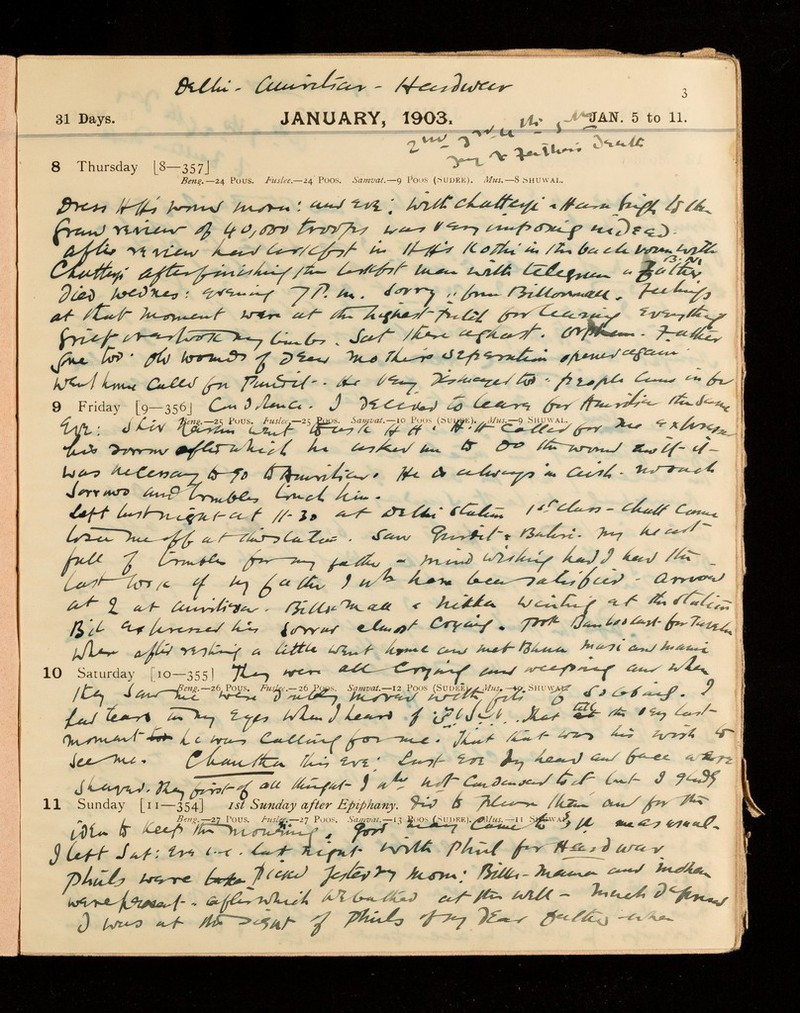 Delhi - Amritsar - Hardwar
3
31 Days. JANUARY, 1903. JAN. 5 to 11.
2nd 3rd 4th 5th
Day of Fathers Death
8 Thursday [8—357]
Beng.—24 Pous. Fuslee.—24 Poos. Samvat.—9 Poos (Sudee). Mus.—8 Shuwal.
Dress H.H's morn: and eve: with Chatterji
Grand review of 40,000 troops was very imposing indeed.
After review had breakfast in H.H's Kothi in the back room with
Chatterji after finishing the breakfst man with telegram Father
Died Wednes: evening 7 P.m. Sorry from Billomall. Feelings
at that moment were at the highest pitch for leaving everything
Grief overtook my limbs. Sat there aghast. Orphan. Father
gone too. Old wounds of Dear mothers seperation opened again
Went home called for Pundit -. He very dismayed too. people came in for
9 Friday [9—356] Condolence. I decided to leave for Amritsar the same
Beng.—25 Pous. Fuslee.—25 Poos. Samvat.—10 Poos (Sudee). Mus.—9 Shuwal.
Eve: went to ask H.H. H.H called for me expressed
his sorrow after which he asked me to do the work as if it
was necessary to go to Amritsar. He is always in - no such
Sorrows and troubles touch him.
Left last night at 11-30 at Delhi station 1st class - Chatt came
to see me off at the station. Saw My heart
full of troubles for my father - mind wishing had I had the
last look of my father I wld have been satisfied - arrived
at 2 at Amritsar. Billomall & Nikka waiting at the station
Bil expressed his sorrow almost crying. Took
When after resting a little went home and met Masi and
10 Saturday [10—355] They were all crying and weeping and when
Beng.—26 Pous. Fuslee.—26 Poos. Samvat.—12 Poos (Sudee). Mus.—10 Shuwal.
they saw me were moved with fits of sobbing. I
had tears in my eyes when I heard of that till the very last
moment he was calling for me. That that was his wish to
see me. Chautha this Eve: Last Eve my head and face were
shaved. They first of all thought I wld not condescend to it but I gladly
11 Sunday [11—354] 1st Sunday after Epiphany. Did to please them and for the
Beng.—27 Pous. Fuslee.—27 Poos. Samvat.—13 Poos (Sudee). Mus.—11 Shuwal.
idea to keep the mourning. Good many came as usual.
I left Sat: Eve i.e. last night with Phul for Hardwar
Phuls were picked yesterday morn: Billo - and mohan
were present - after which we bathed at the well - much depressed
I was at the sight of Phuls of my Dear father - when